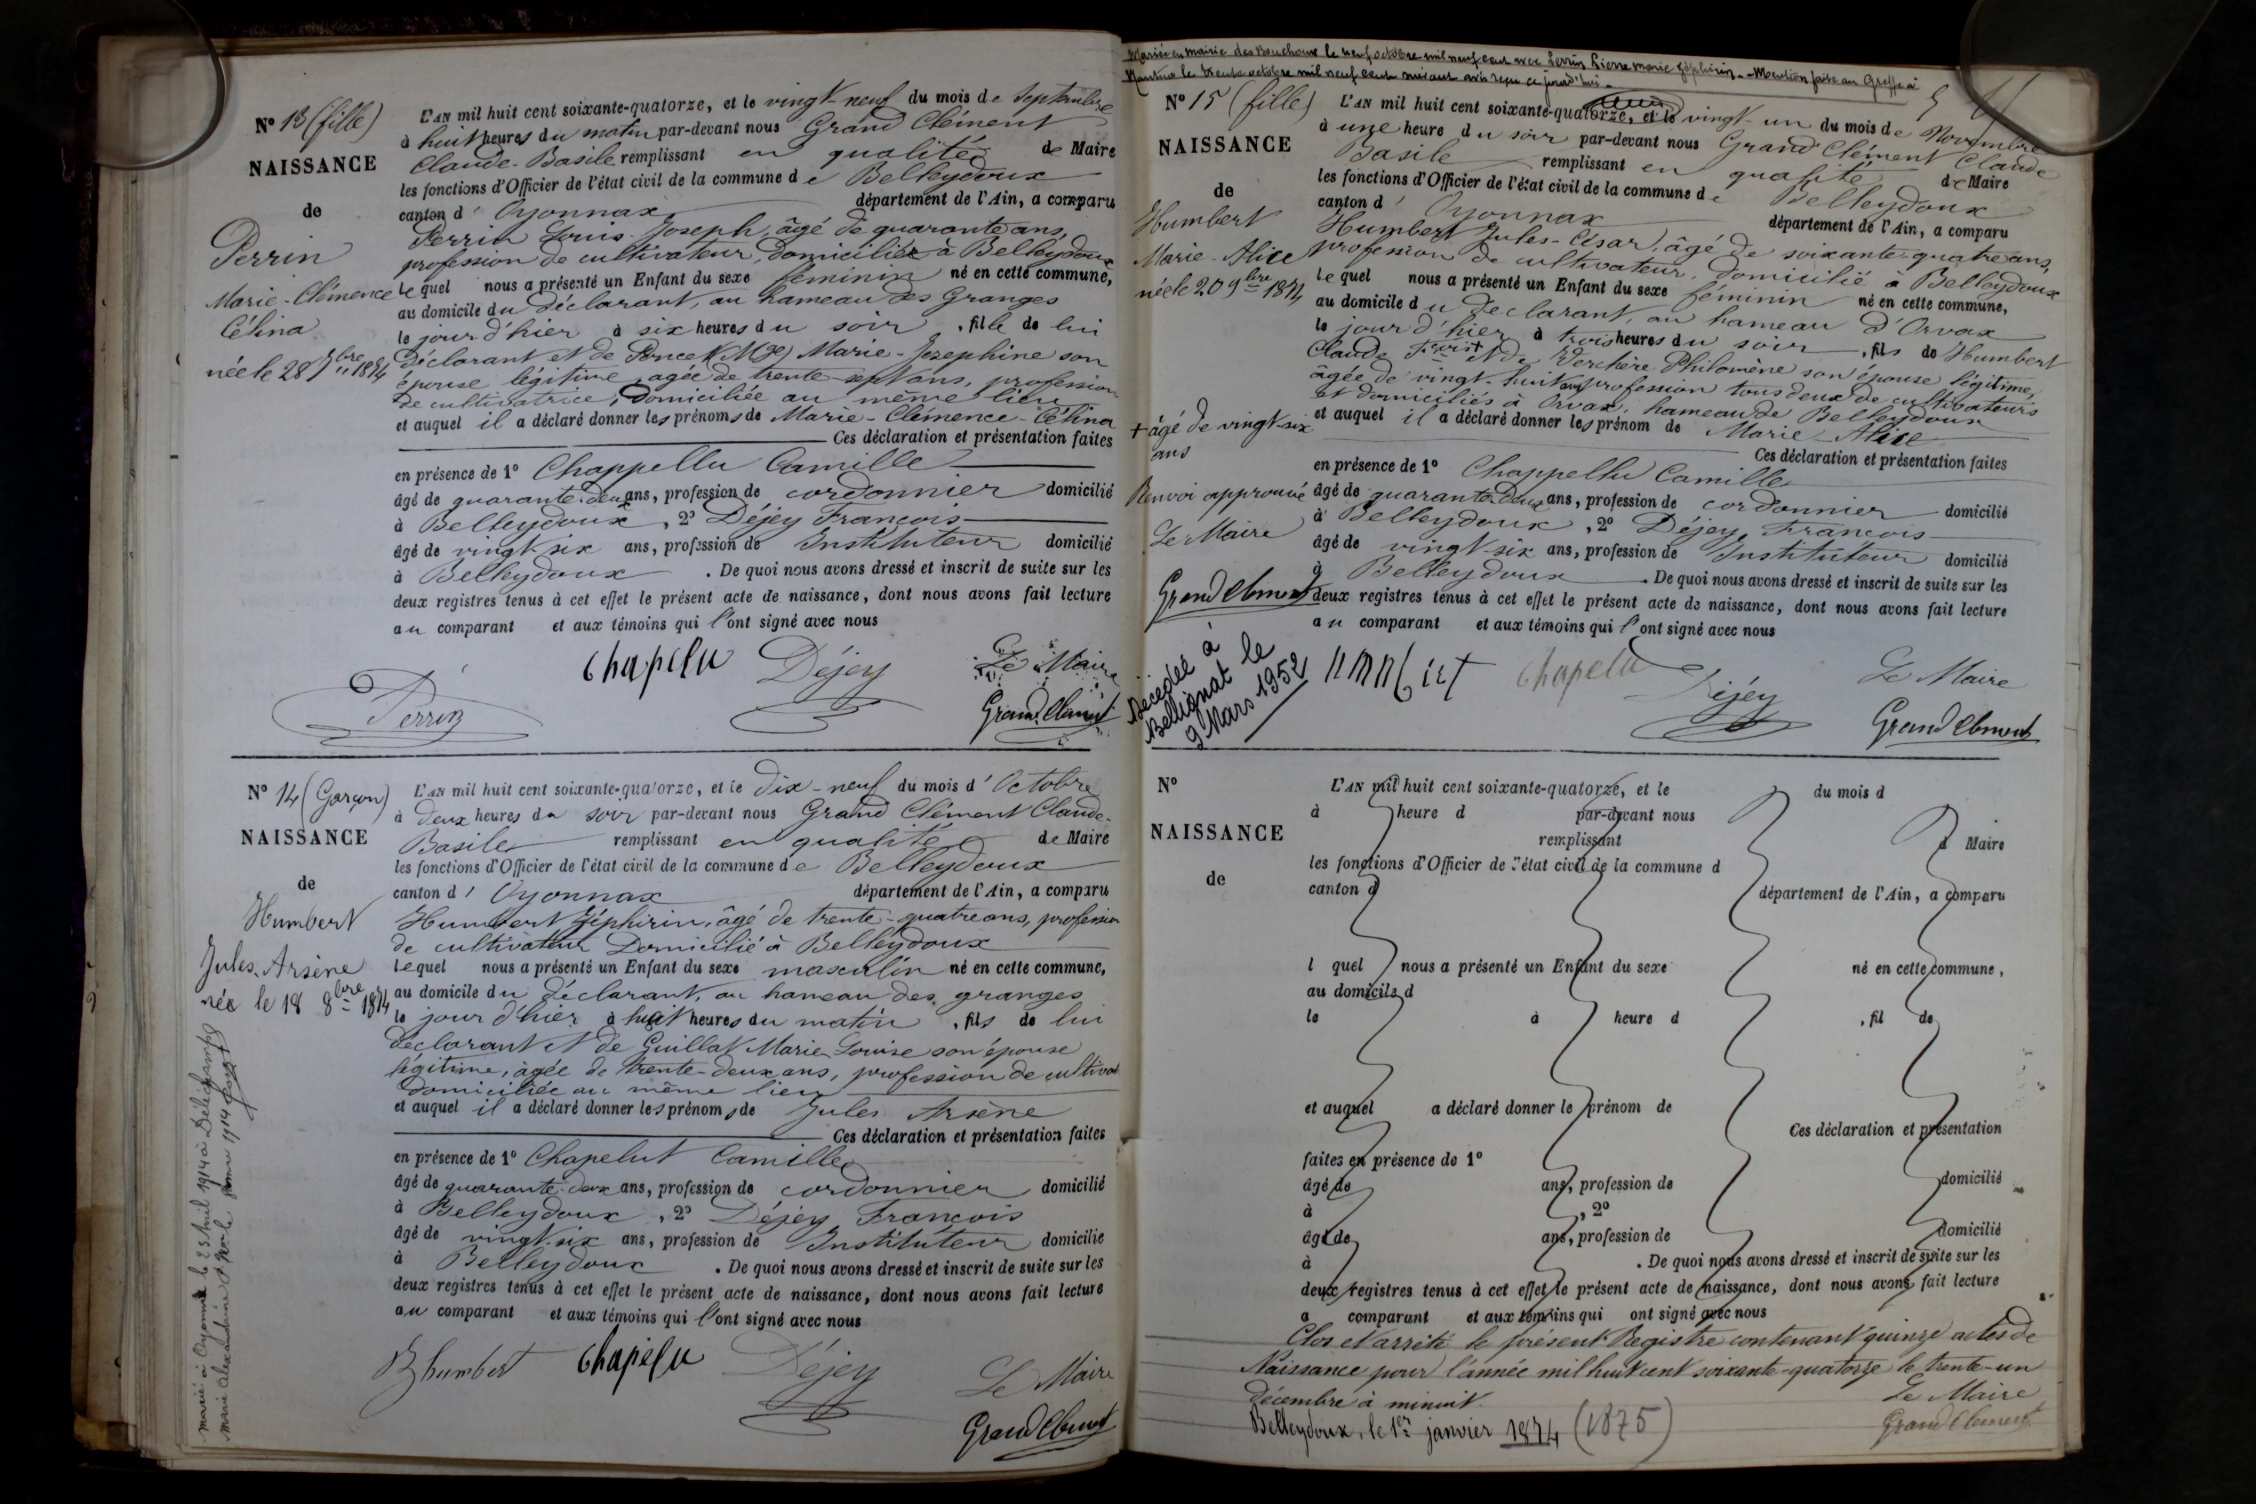 N° 13 (fille)
NAISSANCE
de
Perrin
Marie-Clémence
Célina
née le 28 7bre 1874
L'AN mil huit cent soixante-quatorze, et le vingt-neuf du mois de Septembre
à huit heures du matin par-devant nous Grand Clément
Claude-Basile remplissant en qualité de Maire
les fonctions d'Officier de l'état civil de la commune de Belleydoux
canton d'Oyonnax département de l'Ain, a comparu
Perrin Louis-Joseph, âgé de quarante ans,
profession de cultivateur, domicilié à Belleydoux
Lequel nous a présenté un Enfant du sexe féminin né en cette commune,
au domicile du déclarant, au hameau des Granges
le jour d'hier à six heures du soir, fille de lui
déclarant et de Poncet Marie-Josephine son
épouse légitime, agée de trente-sept ans, profession
de cultivatrice, domiciliée au même lieu
et auquel il a déclaré donner les prénoms de Marie-Clémence-Célina
Ces déclaration et présentation faites
en présence de 1° Chappellu Camille
âgé de quarante-deux ans, profession de cordonnier domicilié
à Belleydoux, 2° Déjey François
âgé de vingt-six ans, profession de Instituteur domicilié
à Belleydoux. De quoi nous avons dressé et inscrit de suite sur les
deux registres tenus à cet effet le présent acte de naissance, dont nous avons fait lecture
au comparant et aux témoins qui l'ont signé avec nous
Perrin Chapelu Déjey Le Maire
Grand Clément
N° 14 (Garçon)
NAISSANCE
de
Humbert
Jules-Arsène
née le 18 8bre 1874
marié à Oyonnax le 25 Avril 1914 à Délechamps
Marie Alexandrine
L'AN mil huit cent soixante-quatorze, et le dix-neuf du mois d'Octobre
à deux heures du soir par-devant nous Grand Clément Claude-
Basile remplissant en qualité de Maire
les fonctions d'Officier de l'état civil de la commune de Belleydoux
canton d'Oyonnax département de l'Ain, a comparu
Humbert Zéphirin, âgé de trente-quatre ans, profession
de cultivateur Domicilié à Belleydoux
Lequel nous a présenté un Enfant du sexe masculin né en cette commune,
au domicile du déclarant, au hameau des granges
le jour d'hier à huit heures du matin, fils de lui
déclarant et de Guillat Marie-Louise son épouse
légitime, agée de trente-deux ans, profession de cultivat
domiciliée au même lieu
et auquel il a déclaré donner les prénoms de Jules Arsène
Ces déclaration et présentation faites
en présence de 1° Chapelut Camille
âgé de quarante-deux ans, profession de cordonnier domicilié
à Belleydoux, 2° Déjey François
âgé de vingt-six ans, profession de Instituteur domicilié
à Belleydoux. De quoi nous avons dressé et inscrit de suite sur les
deux registres tenus à cet effet le présent acte de naissance, dont nous avons fait lecture
au comparant et aux témoins qui l'ont signé avec nous
Zhumbert Chapelu Déjey Le Maire
Grand Clément
Mariée en mairie des Bouchoux le neuf octobre mil neuf cent avec Perrin Pierre Marie Zéphirin. - Mention faite au Greffe à
Nantua le trente octobre mil neuf cent suivant avis reçu ce jourd'hui.
N° 15 (fille)
NAISSANCE
de
Humbert
Marie-Alice
née le 20 9bre 1874
+ âgé de vingt-six
ans
Renvoi approuvé
Le Maire
Grand Clément
Décédée à
Bellignat le
9 Mars 1952
L'AN mil huit cent soixante-quatorze, et le vingt-un du mois de Novembre
à une heure du soir par-devant nous Grand Clément Claude
Basile remplissant en qualité de Maire
les fonctions d'Officier de l'état civil de la commune de Belleydoux
canton d'Oyonnax département de l'Ain, a comparu
Humbert Jules-César, âgé de soixante-quatre ans,
profession de cultivateur, domicilié à Belleydoux
Lequel nous a présenté un Enfant du sexe féminin né en cette commune,
au domicile du déclarant, au hameau d'Orvax
le jour d'hier à trois heures du soir, fils de Humbert
Claude + et de Verchère Philomène son épouse légitime,
âgée de vingt-huit ans profession tous deux de cultivateurs
et domiciliés à Orvax, hameau de Belleydoux
et auquel il a déclaré donner les prénom de Marie-Alice
Ces déclaration et présentation faites
en présence de 1° Chappellu Camille
âgé de quarante-deux ans, profession de cordonnier domicilié
à Belleydoux, 2° Déjey François
âgé de vingt-six ans, profession de Instituteur domicilié
à Belleydoux. De quoi nous avons dressé et inscrit de suite sur les
deux registres tenus à cet effet le présent acte de naissance, dont nous avons fait lecture
au comparant et aux témoins qui l'ont signé avec nous
Chapelu Déjey Le Maire
Grand Clément
N°
NAISSANCE
de
L'AN mil huit cent soixante-quatorze, et le du mois d
à heure d par-devant nous
remplissant d Maire
les fonctions d'Officier de l'état civil de la commune d
canton d département de l'Ain, a comparu
l quel nous a présenté un Enfant du sexe né en cette commune,
au domicile d
le à heure d , fil de
et auquel a déclaré donner le prénom de
Ces déclaration et présentation
faites en présence de 1°
âgé de ans, profession de domicilié
à , 2°
âgé de ans, profession de domicilié
à . De quoi nous avons dressé et inscrit de suite sur les
deux registres tenus à cet effet le présent acte de naissance, dont nous avons fait lecture
a comparant et aux témoins qui ont signé avec nous
Clos et arrêté le présent Registre contenant quinze actes de
Naissance pour l'année mil huit cent soixante-quatorze le trente-un
décembre à minuit.
Belleydoux, le 1er janvier 1874 (1875)
Le Maire
Grand Clément